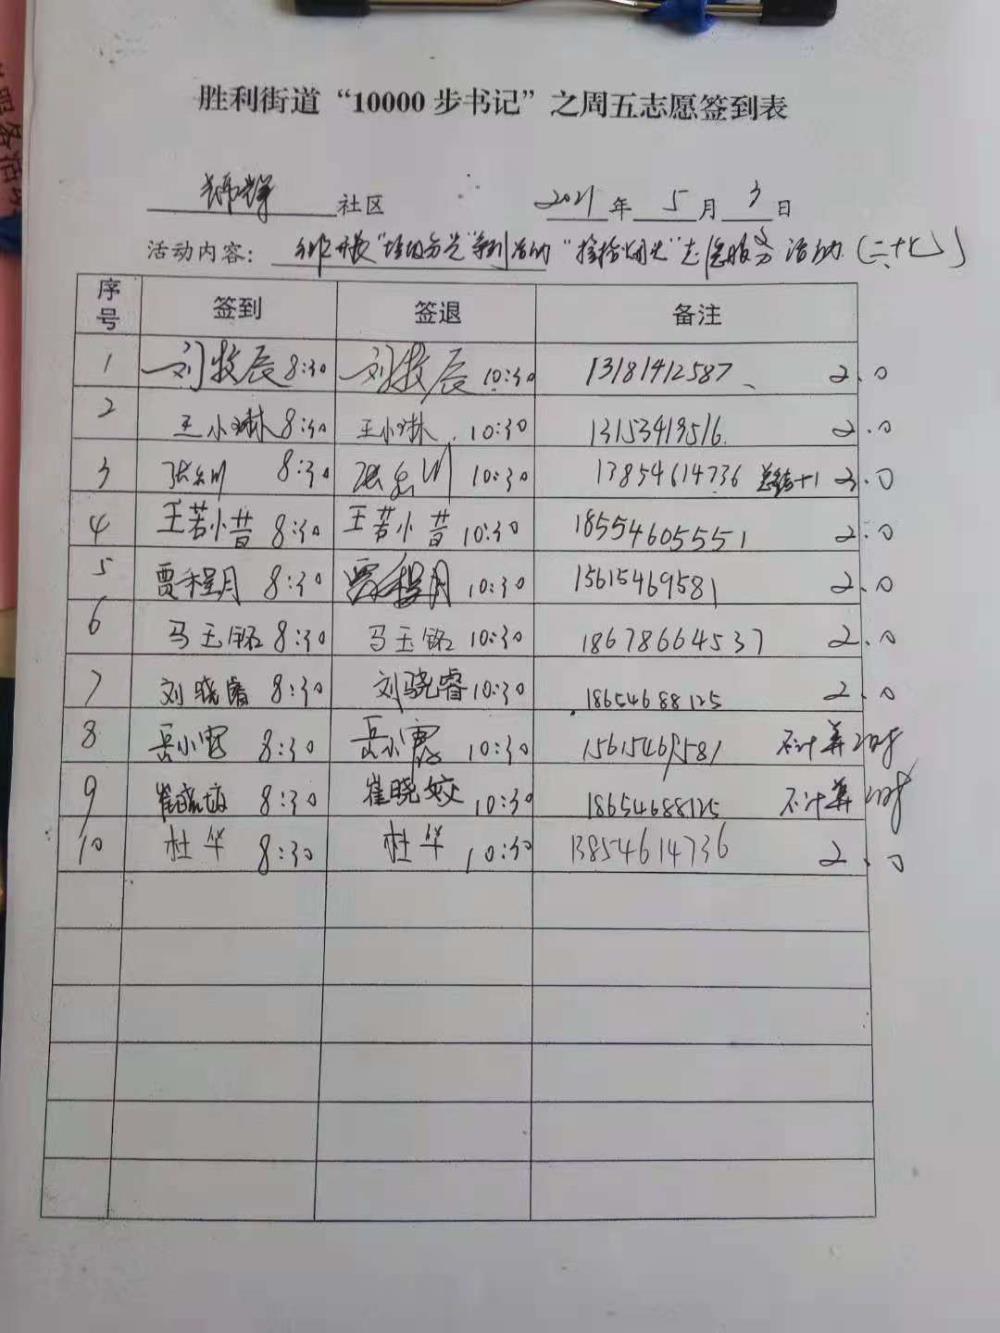 胜利街道“10000步书记”之周五志愿签到表
锦辉 社区 2021 年 5 月 3 日
活动内容： 开展“垃圾分类”系列活动“捡拾烟头”志愿服务活动（二十七）
序号 签到 签退 备注
1 刘牧辰 8:30 刘牧辰 10:30 13181412587 2.0
2 王小琳 8:30 王小琳 10:30 13153419516 2.0
3 8:30 10:30 13854614736 总结+1 3.0
4 王若惜 8:30 王若惜 10:30 18554605551 2.0
5 贾程月 8:30 贾程月 10:30 15615469581 2.0
6 马玉铭 8:30 马玉铭 10:30 18678664537 2.0
7 刘晓睿 8:30 刘晓睿 10:30 18654688125 2.0
8 岳小霞 8:30 岳小霞 10:30 15615469581 不计算时
9 崔晓姣 8:30 崔晓姣 10:30 18654688125 不计算时
10 杜华 8:30 杜华 10:30 13854614736 2.0